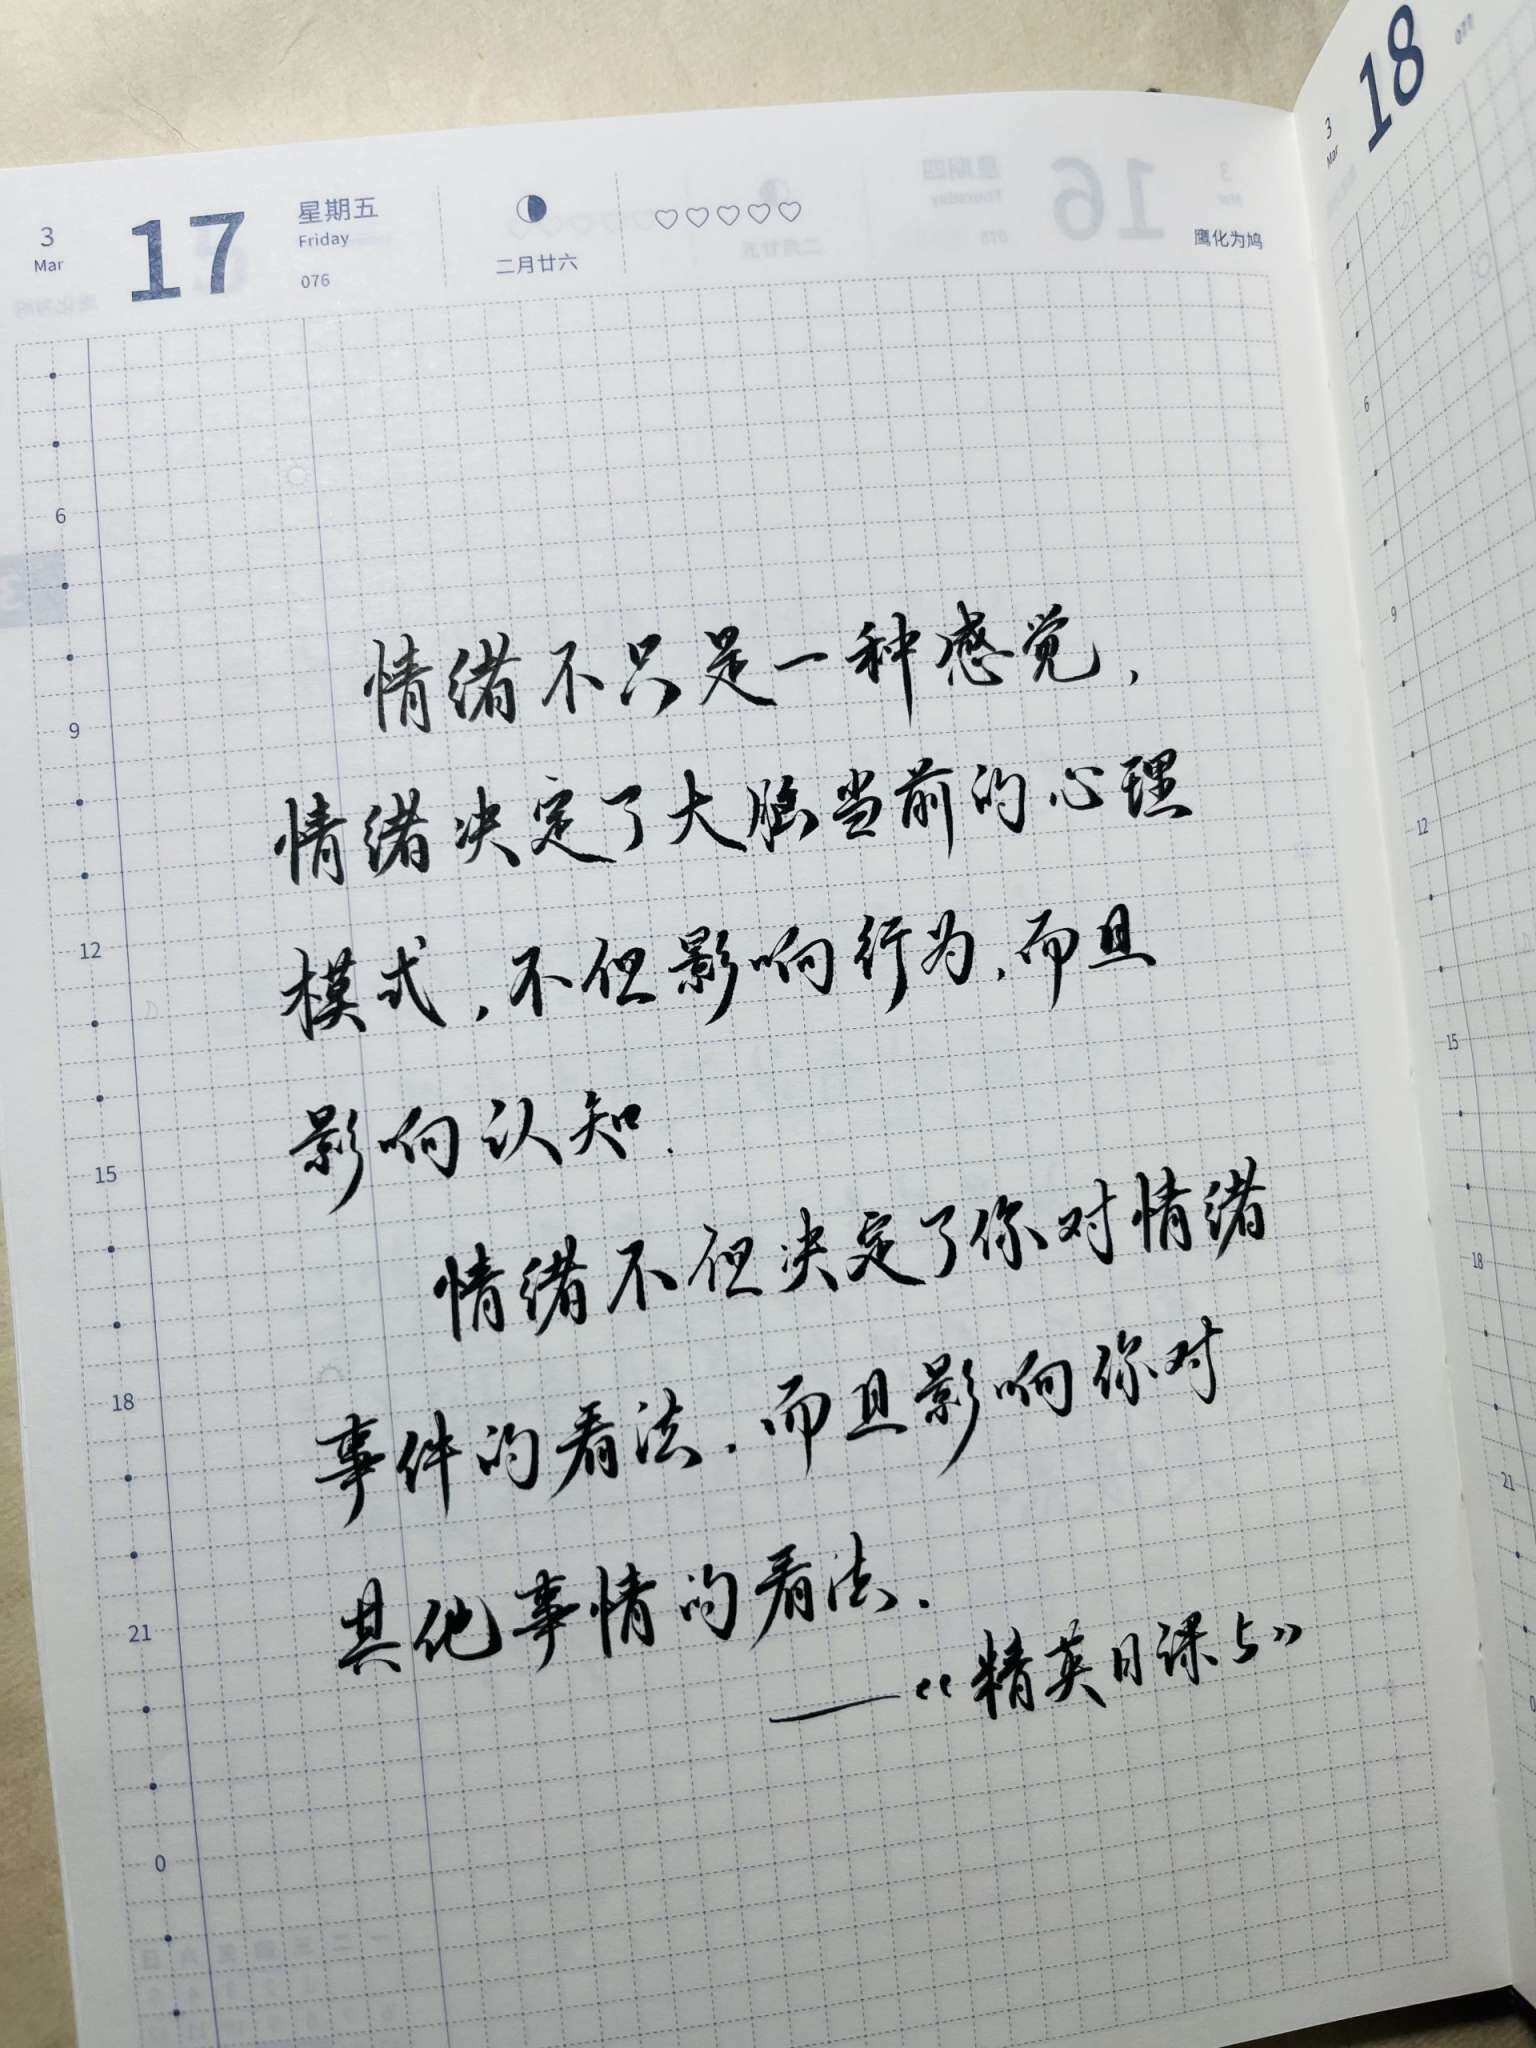 3
Mar
17
星期五
Friday
076
二月廿六
鹰化为鸠
6
9
12
15
18
21
0
情绪不只是一种感觉，
情绪决定了大脑当前的心理
模式，不但影响行为，而且
影响认知.
情绪不但决定了你对情绪
事件的看法.而且影响你对
其他事情的看法.
——《精英日课5》
3
Mar
18
6
9
12
15
18
21
0